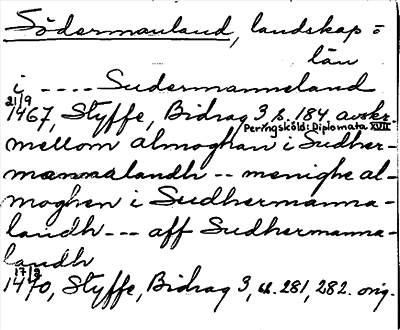 Södermanland, landskap o
län
i ---- Sudermanneland
21/9
1467, Styffe, Bidrag 3 s. 184 avskr.
Peringsköld: Diplomata XVII
mellom almoghan i Sudher-
mannalandh -- menighe al-
moghen i Sudhermanna-
landh --- aff Sudhermanna-
landh
17/3
1470, Styffe, Bidrag 3, s. 281, 282. orig.